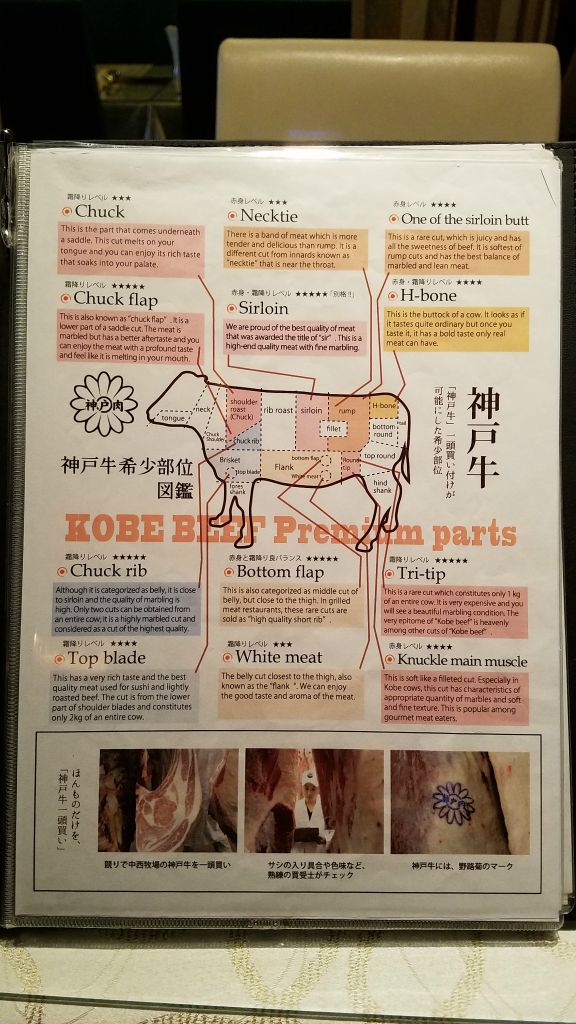 霜降りレベル ★★★
Chuck
This is the part that comes underneath
a saddle. This cut melts on your
tongue and you can enjoy its rich taste
that soaks into your palate.
赤身レベル ★★★
Necktie
There is a band of meat which is more
tender and delicious than rump. It is a
different cut from innards known as
"necktie" that is near the throat.
赤身レベル ★★★★
One of the sirloin butt
This is a rare cut, which is juicy and has
all the sweetness of beef. It is softest of
rump cuts and has the best balance of
marbled and lean meat.
霜降りレベル ★★★★★
Chuck flap
This is also known as "chuck flap" . It is a
lower part of a saddle cut. The meat is
marbled but has a better aftertaste and you
can enjoy the meat with a profound taste
and feel like it is melting in your mouth.
赤身・霜降りレベル ★★★★★「別格!!」
Sirloin
We are proud of the best quality of meat
that was awarded the title of "sir" . This is a
high-end quality meat with fine marbling.
赤身レベル ★★★★
H-bone
This is the buttock of a cow. It looks as if
it tastes quite ordinary but once you
taste it, it has a bold taste only real
meat can have.
神戸肉
神戸牛希少部位
図鑑
tongue
neck
shoulder
roast
(Chuck)
Chuck
Shoulder
Chuck rib
rib roast
sirloin
rump
fillet
H-bone
tail
bottom
round
Brisket
top blade
Flank
bottom flap
White meat
Round
tip
top round
fores
shank
hind
shank
神戸牛
「神戸牛」一頭買い付けが
可能にした希少部位
KOBE BEEF Premium parts
霜降りレベル ★★★★★
Chuck rib
Although it is categorized as belly, it is close
to sirloin and the quality of marbling is
high. Only two cuts can be obtained from
an entire cow; it is a highly marbled cut and
considered as a cut of the highest quality.
赤身と霜降り良バランス ★★★★★
Bottom flap
This is also categorized as middle cut of
belly, but close to the thigh. In grilled
meat restaurants, these rare cuts are
sold as "high quality short rib" .
霜降りレベル ★★★★★
Tri-tip
This is a rare cut which constitutes only 1 kg
of an entire cow. It is very expensive and you
will see a beautiful marbling condition. The
very epitome of "Kobe beef" is heavenly
among other cuts of "Kobe beef" .
霜降りレベル ★★★★
Top blade
This has a very rich taste and the best
quality meat used for sushi and lightly
roasted beef. The cut is from the lower
part of shoulder blades and constitutes
only 2kg of an entire cow.
霜降りレベル ★★★
White meat
The belly cut closest to the thigh, also
known as the "flank ". We can enjoy
the good taste and aroma of the meat.
赤身レベル ★★★★
Knuckle main muscle
This is soft like a filleted cut. Especially in
Kobe cows, this cut has characteristics of
appropriate quantity of marbles and soft
and fine texture. This is popular among
gourmet meat eaters.
ほんものだけを、
「神戸牛一頭買い」
競りで中西牧場の神戸牛を一頭買い
サシの入り具合や色味など、
熟練の買受士がチェック
神戸牛には、野路菊のマーク